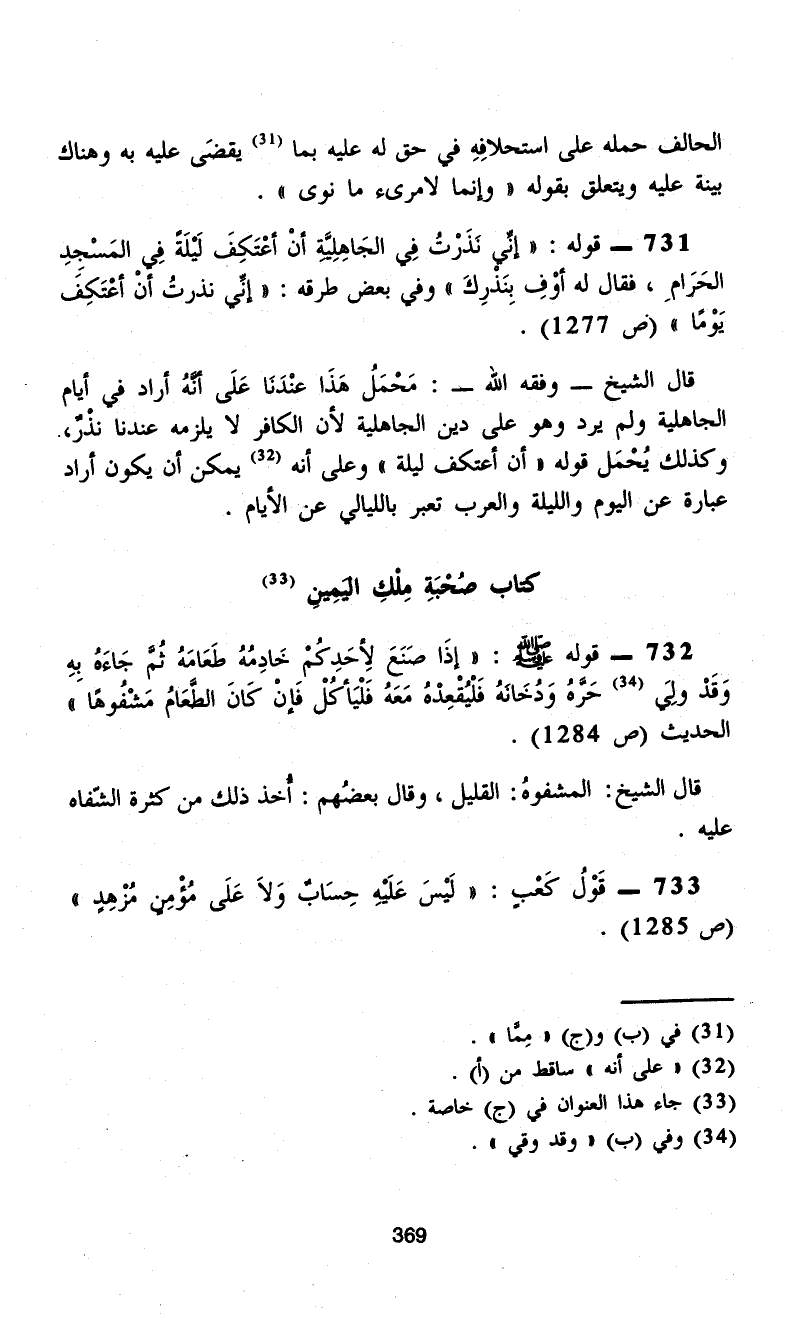 الحالف حمله على استحلافِهِ في حق له عليه بما (31) يقضَى عليه به وهناك
بينة عليه ويتعلق بقوله « وإنما لامرىء ما نوى » .
731 — قوله : « إنِّي نَذَرْتُ فِي الجَاهِلِيَّةِ أنْ أعْتَكِفَ لَيْلَةً فِي المَسْجِدِ
الحَرَامِ ، فقال له أوْفِ بِنَذْرِكَ » وفي بعض طرقه : « إنِّي نذرتُ أنْ أعْتَكِفَ
يَوْمًا » (ص 1277) .
قال الشيخ — وفقه الله — : مَحْمَلُ هَذَا عنْدَنَا عَلَى أنَّهُ أراد في أيام
الجاهلية ولم يرد وهو على دين الجاهلية لأن الكافر لا يلزمه عندنا نذْرٌ،.
وكذلك يُحْمَل قوله « أن أعتكف ليلة » وعلى أنه (32) يمكن أن يكون أراد
عبارة عن اليوم والليلة والعرب تعبر بالليالي عن الأيام .
كتاب صُحْبَةِ مِلْكِ اليَمِينِ (33)
732 — قوله ﷺ : « إذَا صَنَعَ لِأحَدِكُمْ خَادِمُهُ طَعَامَهُ ثُمَّ جَاءَهُ بِهِ
وَقَدْ ولِيَ (34) حَرَّهُ وَدُخَانَهُ فَلْيُقْعِدْهُ مَعَهُ فَلْيَأكُلْ فَإنْ كَانَ الطَّعَامُ مَشْفُوهًا »
الحديث (ص 1284) .
قال الشيخ : المشفوهُ : القليل ، وقال بعضُهم : أُخذ ذلك من كثرة الشّفاه
عليه .
733 — قَوْلُ كَعْبٍ : « لَيْسَ عَلَيْهِ حِسَابٌ وَلاَ عَلَى مُؤْمِنٍ مُزْهِدٍ »
(ص 1285) .
(31) في (ب) و(ج) « مِمَّا » .
(32) « على أنه » ساقط من (أ) .
(33) جاء هذا العنوان في (ج) خاصة .
(34) وفي (ب) « وقد وقي » .
369